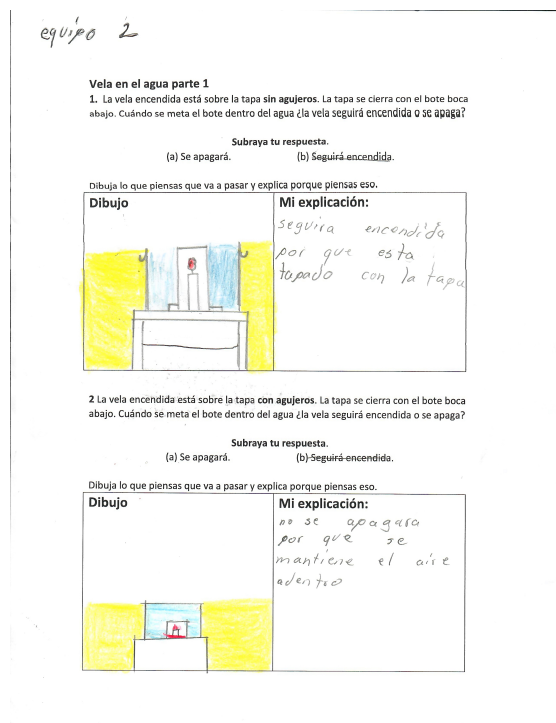 equipo 2
Vela en el agua parte 1
1. La vela encendida está sobre la tapa sin agujeros. La tapa se cierra con el bote boca
abajo. Cuándo se meta el bote dentro del agua ¿la vela seguirá encendida o se apaga?
Subraya tu respuesta.
(a) Se apagará. (b) Seguirá encendida.
Dibuja lo que piensas que va a pasar y explica porque piensas eso.
Dibujo Mi explicación:
seguira encendida
por que esta
tapado con la tapa
2 La vela encendida está sobre la tapa con agujeros. La tapa se cierra con el bote boca
abajo. Cuándo se meta el bote dentro del agua ¿la vela seguirá encendida o se apaga?
Subraya tu respuesta.
(a) Se apagará. (b) Seguirá encendida.
Dibuja lo que piensas que va a pasar y explica porque piensas eso.
Dibujo Mi explicación:
no se apagara
por que se
mantiene el aire
adentro